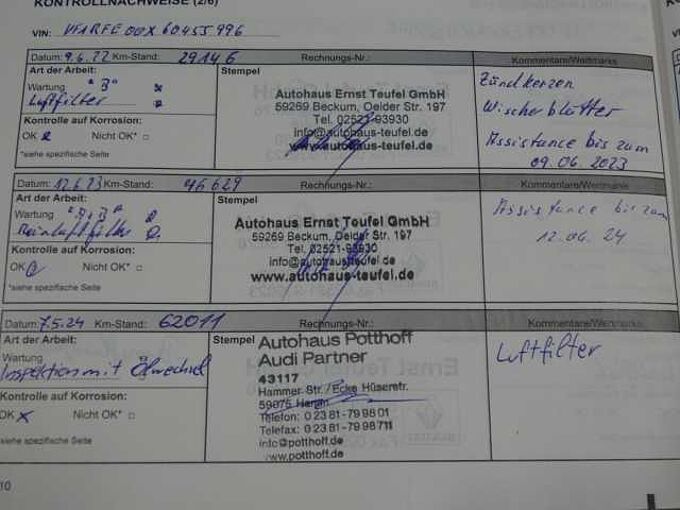 KONTROLLNACHWEISE (2/6)
VIN: VFARFE00X60455996
Datum: 9.6.22 Km-Stand: 29146 Rechnungs-Nr.: Kommentare/Werkmarks
Art der Arbeit: Stempel Zündkerzen
Wartung "B" Autohaus Ernst Teufel GmbH
Luftfilter 59269 Beckum, Oelder Str. 197 Wischerblätter
Kontrolle auf Korrosion: Tel. 02521-93930
OK Nicht OK* □ info@autohaus-teufel.de Assistance bis zum
*siehe spezifische Seite www.autohaus-teufel.de 09.06 2023
Datum: 12.6.23 Km-Stand: 46629 Rechnungs-Nr.: Kommentare/
Art der Arbeit: Stempel Assistance bis zum
Wartung Autohaus Ernst Teufel GmbH
59269 Beckum, Oelder Str. 197 12.06.24
Kontrolle auf Korrosion: Tel. 02521-93930
OK Nicht OK* □ info@autohausteufel.de
*siehe spezifische Seite www.autohaus-teufel.de
Datum: 7.5.24 Km-Stand: 62011 Rechnungs-Nr.: Kommentare/
Art der Arbeit: Stempel Autohaus Potthoff Luftfilter
Wartung Audi Partner
Inspektion mit Ölwechsel 43117
Kontrolle auf Korrosion: Hammer Str. / Ecke Hüserstr.
OK x Nicht OK* □ 59075 Hamm
*siehe spezifische Seite Telefon: 0 23 81-79 98 01
Telefax: 0 23 81-79 98 711
info@potthoff.de
www.potthoff.de
10